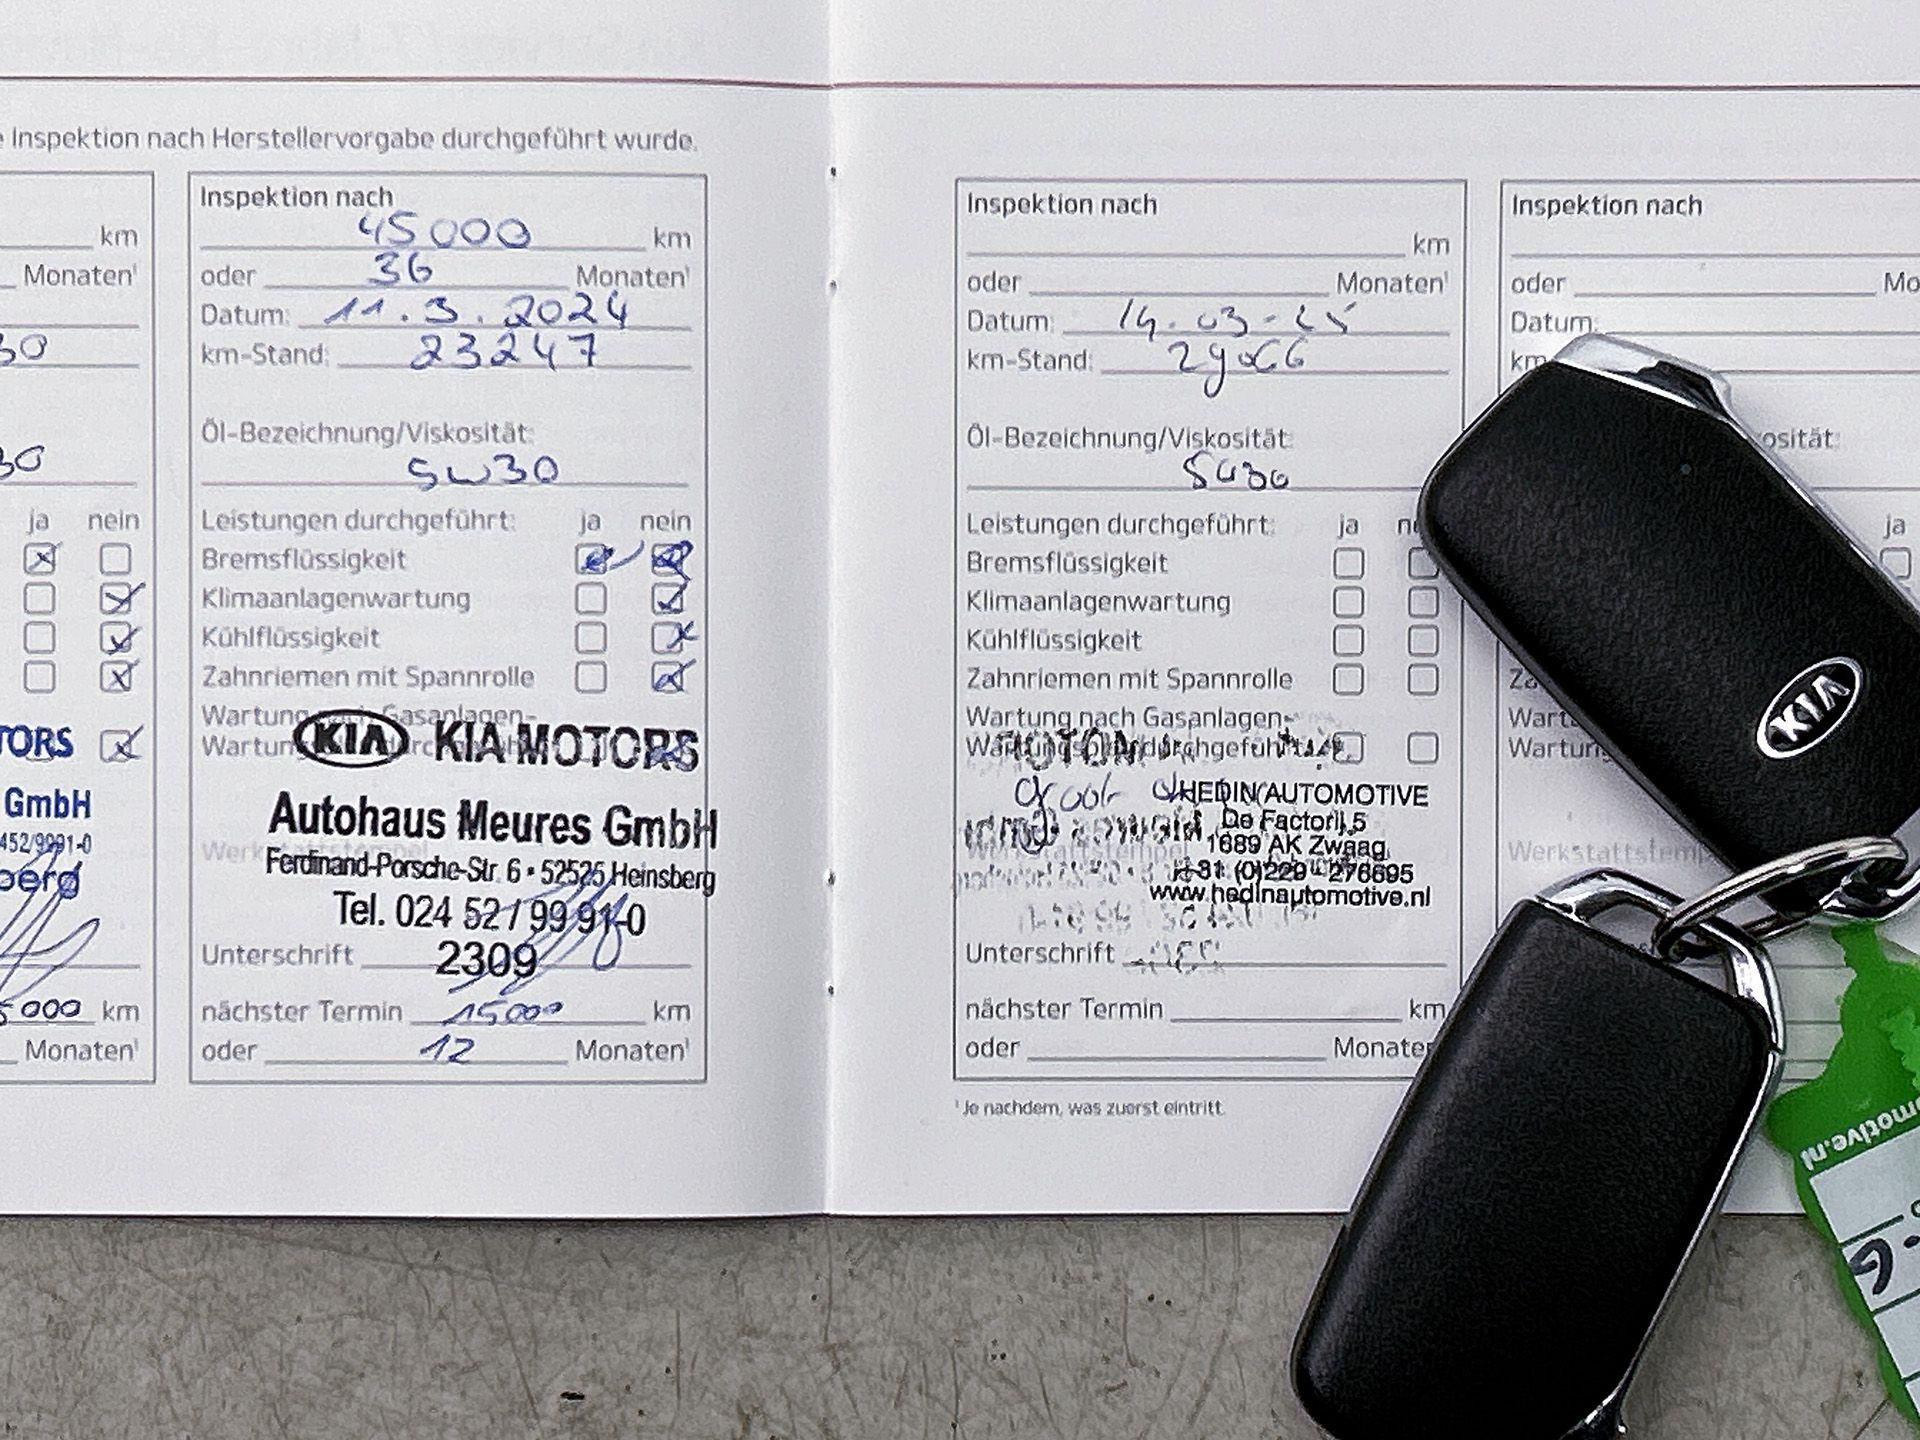 e Inspektion nach Herstellervorgabe durchgeführt wurde.
km
Monaten¹
30
30
ja nein
TORS
GmbH
452/9991-0
berg
5000 km
Monaten¹
Inspektion nach
45000 km
oder 36 Monaten¹
Datum: 11.3.2024
km-Stand: 23247
Öl-Bezeichnung/Viskosität:
5W30
Leistungen durchgeführt: ja nein
Bremsflüssigkeit
Klimaanlagenwartung
Kühlflüssigkeit
Zahnriemen mit Spannrolle
Wartung nach Gasanlagen-
KIA KIA MOTORS
Autohaus Meures GmbH
Ferdinand-Porsche-Str. 6 • 52525 Heinsberg
Tel. 024 52 / 99 91-0
Unterschrift 2309
nächster Termin 15000 km
oder 12 Monaten¹
Inspektion nach
km
oder Monaten¹
Datum: 14-03-25
km-Stand: 29066
Öl-Bezeichnung/Viskosität:
5W30
Leistungen durchgeführt: ja
Bremsflüssigkeit
Klimaanlagenwartung
Kühlflüssigkeit
Zahnriemen mit Spannrolle
Wartung nach Gasanlagen-
HEDIN AUTOMOTIVE
De Factorij 5
1689 AK Zwaag
+31 (0)229 - 276695
www.hedinautomotive.nl
Unterschrift
nächster Termin km
oder Monaten
¹ Je nachdem, was zuerst eintritt.
Inspektion nach
oder Mo
Datum:
km
osität:
ja
Za
Wart
Wartung
Werkstattstemp
KIA
omotive.nl